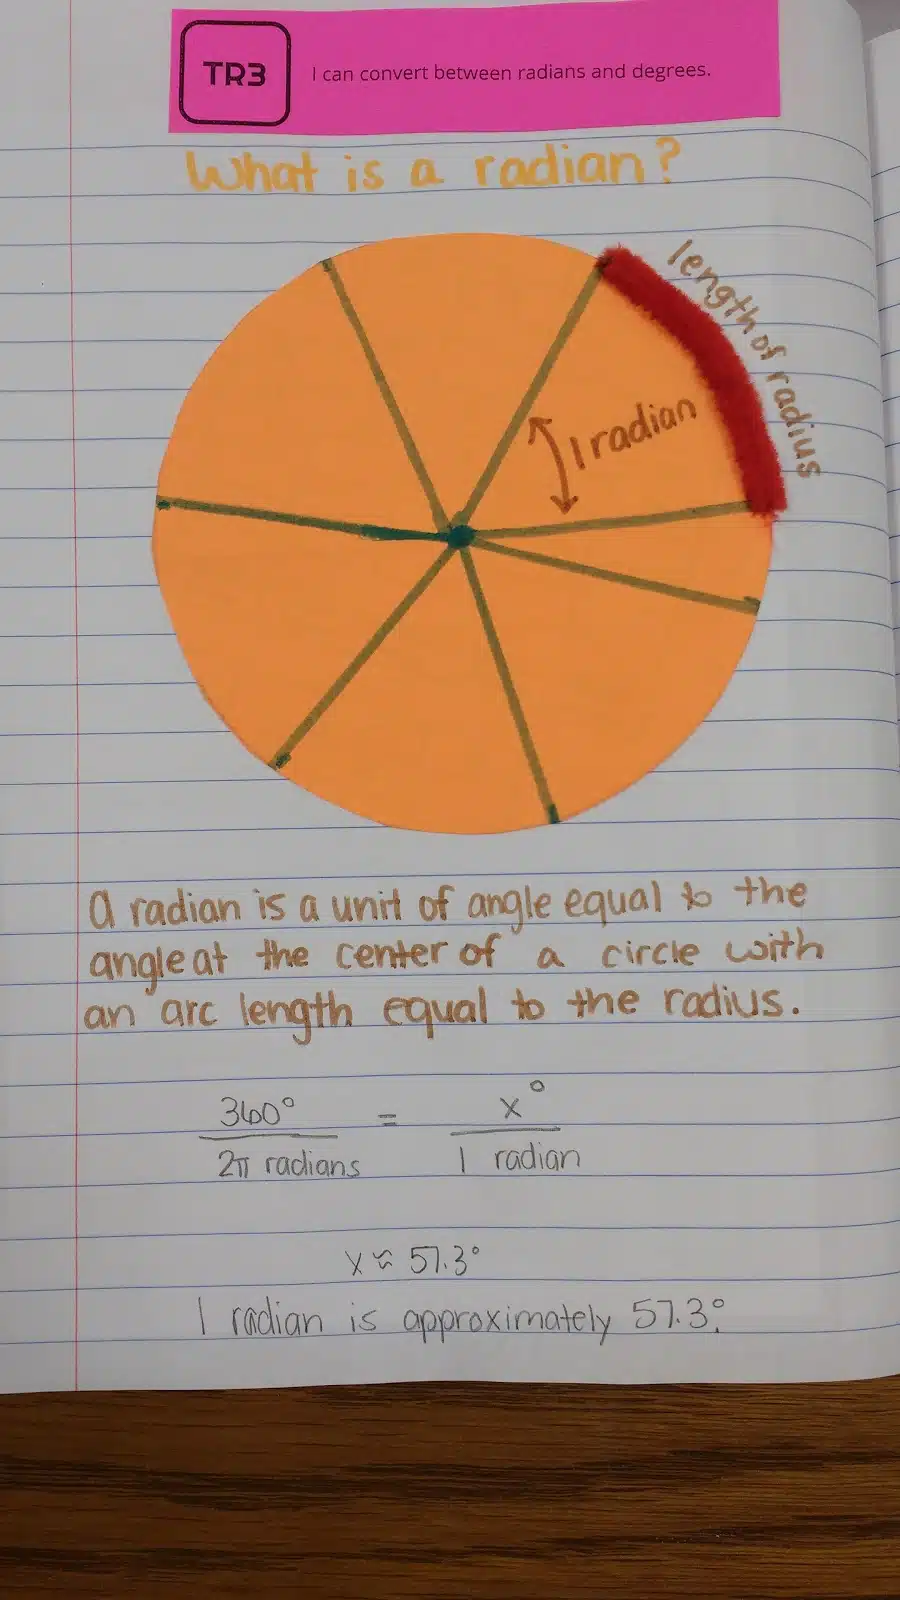 TR3
I can convert between radians and degrees.
What is a radian?
length of radius
1 radian
A radian is a unit of angle equal to the
angle at the center of a circle with
an arc length equal to the radius.
360° = x°
2π radians 1 radian
x ≈ 57.3°
1 radian is approximately 57.3°.